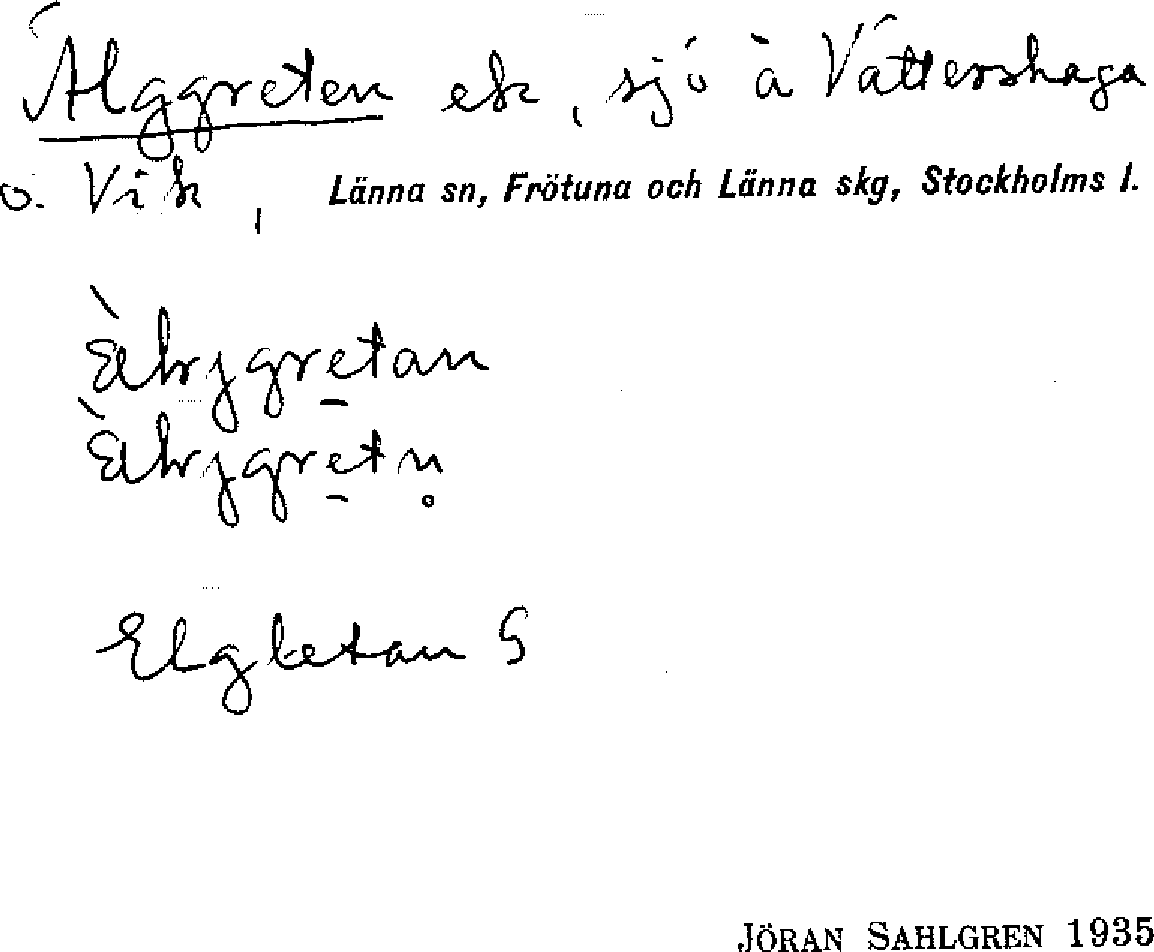 Älggreten ek, sjö å Vättershaga
o. Vik, Länna sn, Frötuna och Länna skg, Stockholms l.
Elgletan S
JÖRAN SAHLGREN 1935